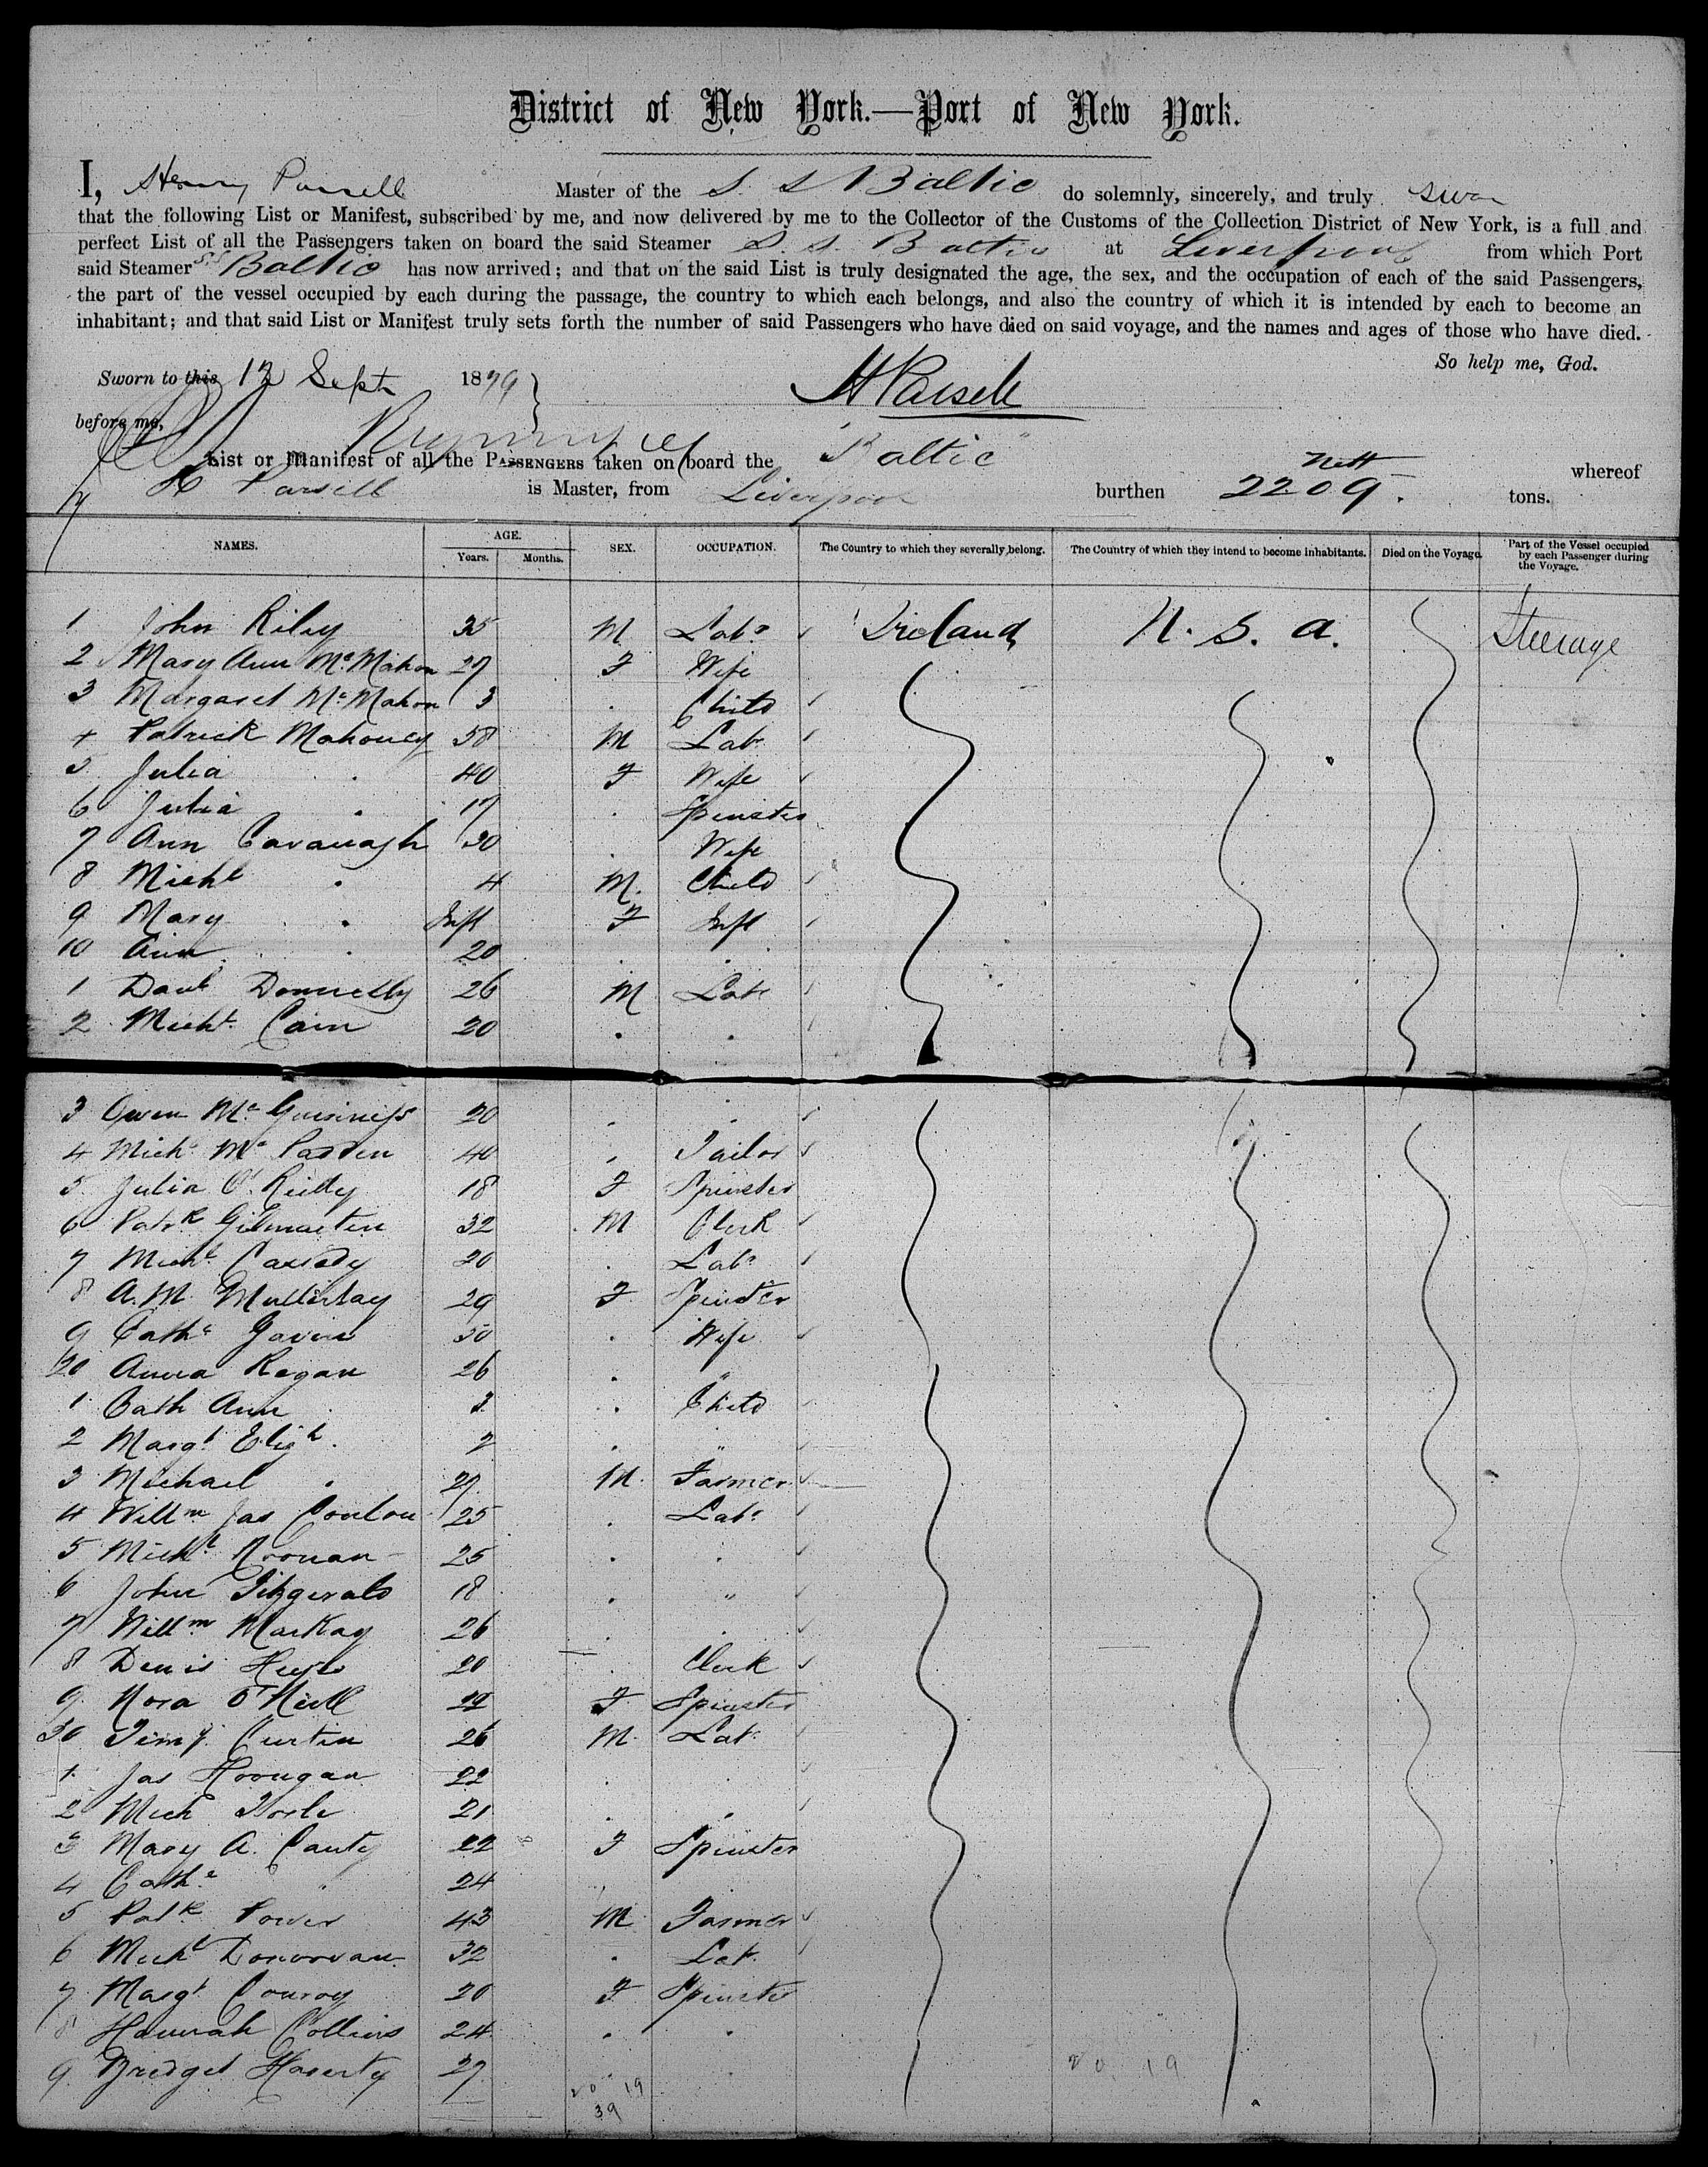 District of New York.—Port of New York.
I, Henry Parsell Master of the S. S Baltic do solemnly, sincerely, and truly swear
that the following List or Manifest, subscribed by me, and now delivered by me to the Collector of the Customs of the Collection District of New York, is a full and
perfect List of all the Passengers taken on board the said Steamer S. S. Baltic at Liverpool from which Port
said Steamer S.S Baltic has now arrived; and that on the said List is truly designated the age, the sex, and the occupation of each of the said Passengers,
the part of the vessel occupied by each during the passage, the country to which each belongs, and also the country of which it is intended by each to become an
inhabitant; and that said List or Manifest truly sets forth the number of said Passengers who have died on said voyage, and the names and ages of those who have died.
So help me, God.
Sworn to this 12 Sept 1879
H Parsell
before me,
List or Manifest of all the PASSENGERS taken on board the "Baltic" whereof
H Parsell is Master, from Liverpool burthen Nett 2209. tons.
NAMES. AGE. Years. Months. SEX. OCCUPATION. The Country to which they severally belong. The Country of which they intend to become inhabitants. Died on the Voyage. Part of the Vessel occupied by each Passenger during the Voyage.
1 John Riley 35 M Labr Ireland U. S. A. Steerage
2 Mary Ann McMahon 27 F Wife
3 Margaret McMahon 3 . Child
4 Patrick Mahoney 58 M Labr
5 Julia . 40 F Wife
6 Julia . 17 . Spinster
7 Ann Cavanagh 30 . Wife
8 Michl . 4 M. Child
9 Mary . Inft F Inft
10 Ann . 20 . .
1 Danl Donnelly 26 M Labr
2 Michl Cain 20 . .
3 Owen McGuinness 20 . .
4 Michl McPadden 40 . Tailor
5 Julia O'Reilly 18 F Spinster
6 Patrk Gilmartin 32 M Clerk
7 Michl Cassidy 20 . Labr
8 A.M. 29 F Spinster
9 Cathe Gavin 50 . Wife
20 Anna Regan 26 . "
1 Cath Ann . 3 . Child
2 Margt Elizh . 2 . "
3 Michael . 27 M. Farmer
4 Willm Jas Conlon 25 . Labr
5 Michl Noonan 25 . .
6 John Fitzgerald 18 . "
7 Willm MacKay 26 . .
8 Denis 20 . Clerk
9 Nora O'Neill F Spinster
30 Timy Curtin 26 M. Lab.
1 Jas Hourigan 22 . .
2 Mich 21 . .
3 Mary A. Canty 22 F Spinster
4 Cathe " 24 .
5 Patk Power 43 M Farmer
6 Michl Donovan 32 . Lab.
7 Margt Conroy 20 F Spinster
8 Hannah Collins 24 . .
9 Bridget Haverty 27 . .
20 19
20 19
39